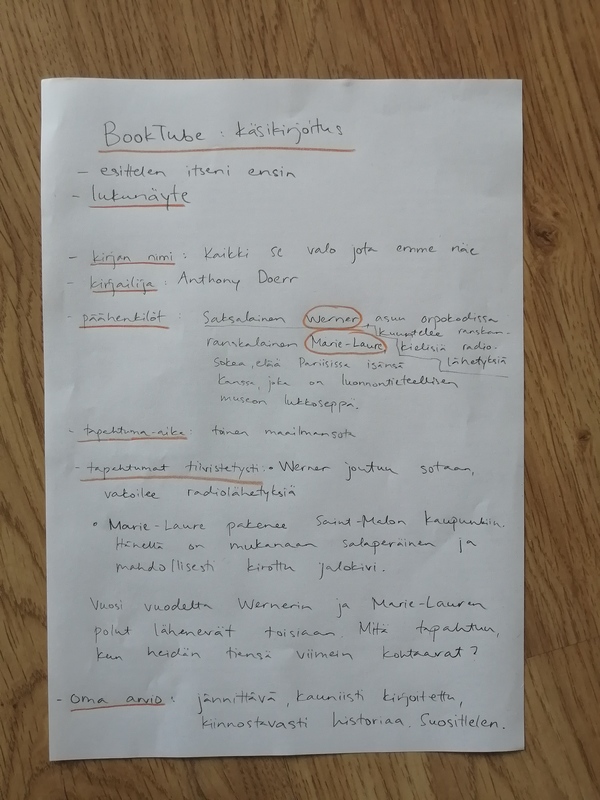 BookTube: käsikirjoitus
- esittelen itseni ensin
- lukunäyte
- kirjan nimi: Kaikki se valo jota emme näe
- kirjailija: Anthony Doerr
- päähenkilöt: Saksalainen Werner, asuu orpokodissa
kuuntelee ranskan-
kielisiä radio-
lähetyksiä
ranskalainen Marie-Laure
Sokea, elää Pariisissa isänsä
kanssa, joka on luonnontieteellisen
museon lukkoseppä.
- tapahtuma-aika: toinen maailmansota
- tapahtumat tiivistetysti: • Werner joutuu sotaan,
vakoilee radiolähetyksiä
• Marie-Laure pakenee Saint-Malon kaupunkiin.
Hänellä on mukanaan salaperäinen ja
mahdollisesti kirottu jalokivi.
Vuosi vuodelta Wernerin ja Marie-Lauren
polut lähenevät toisiaan. Mitä tapahtuu,
kun heidän tiensä viimein kohtaavat?
- oma arvio: jännittävä, kauniisti kirjoitettu,
kiinnostavasti historiaa. Suosittelen.